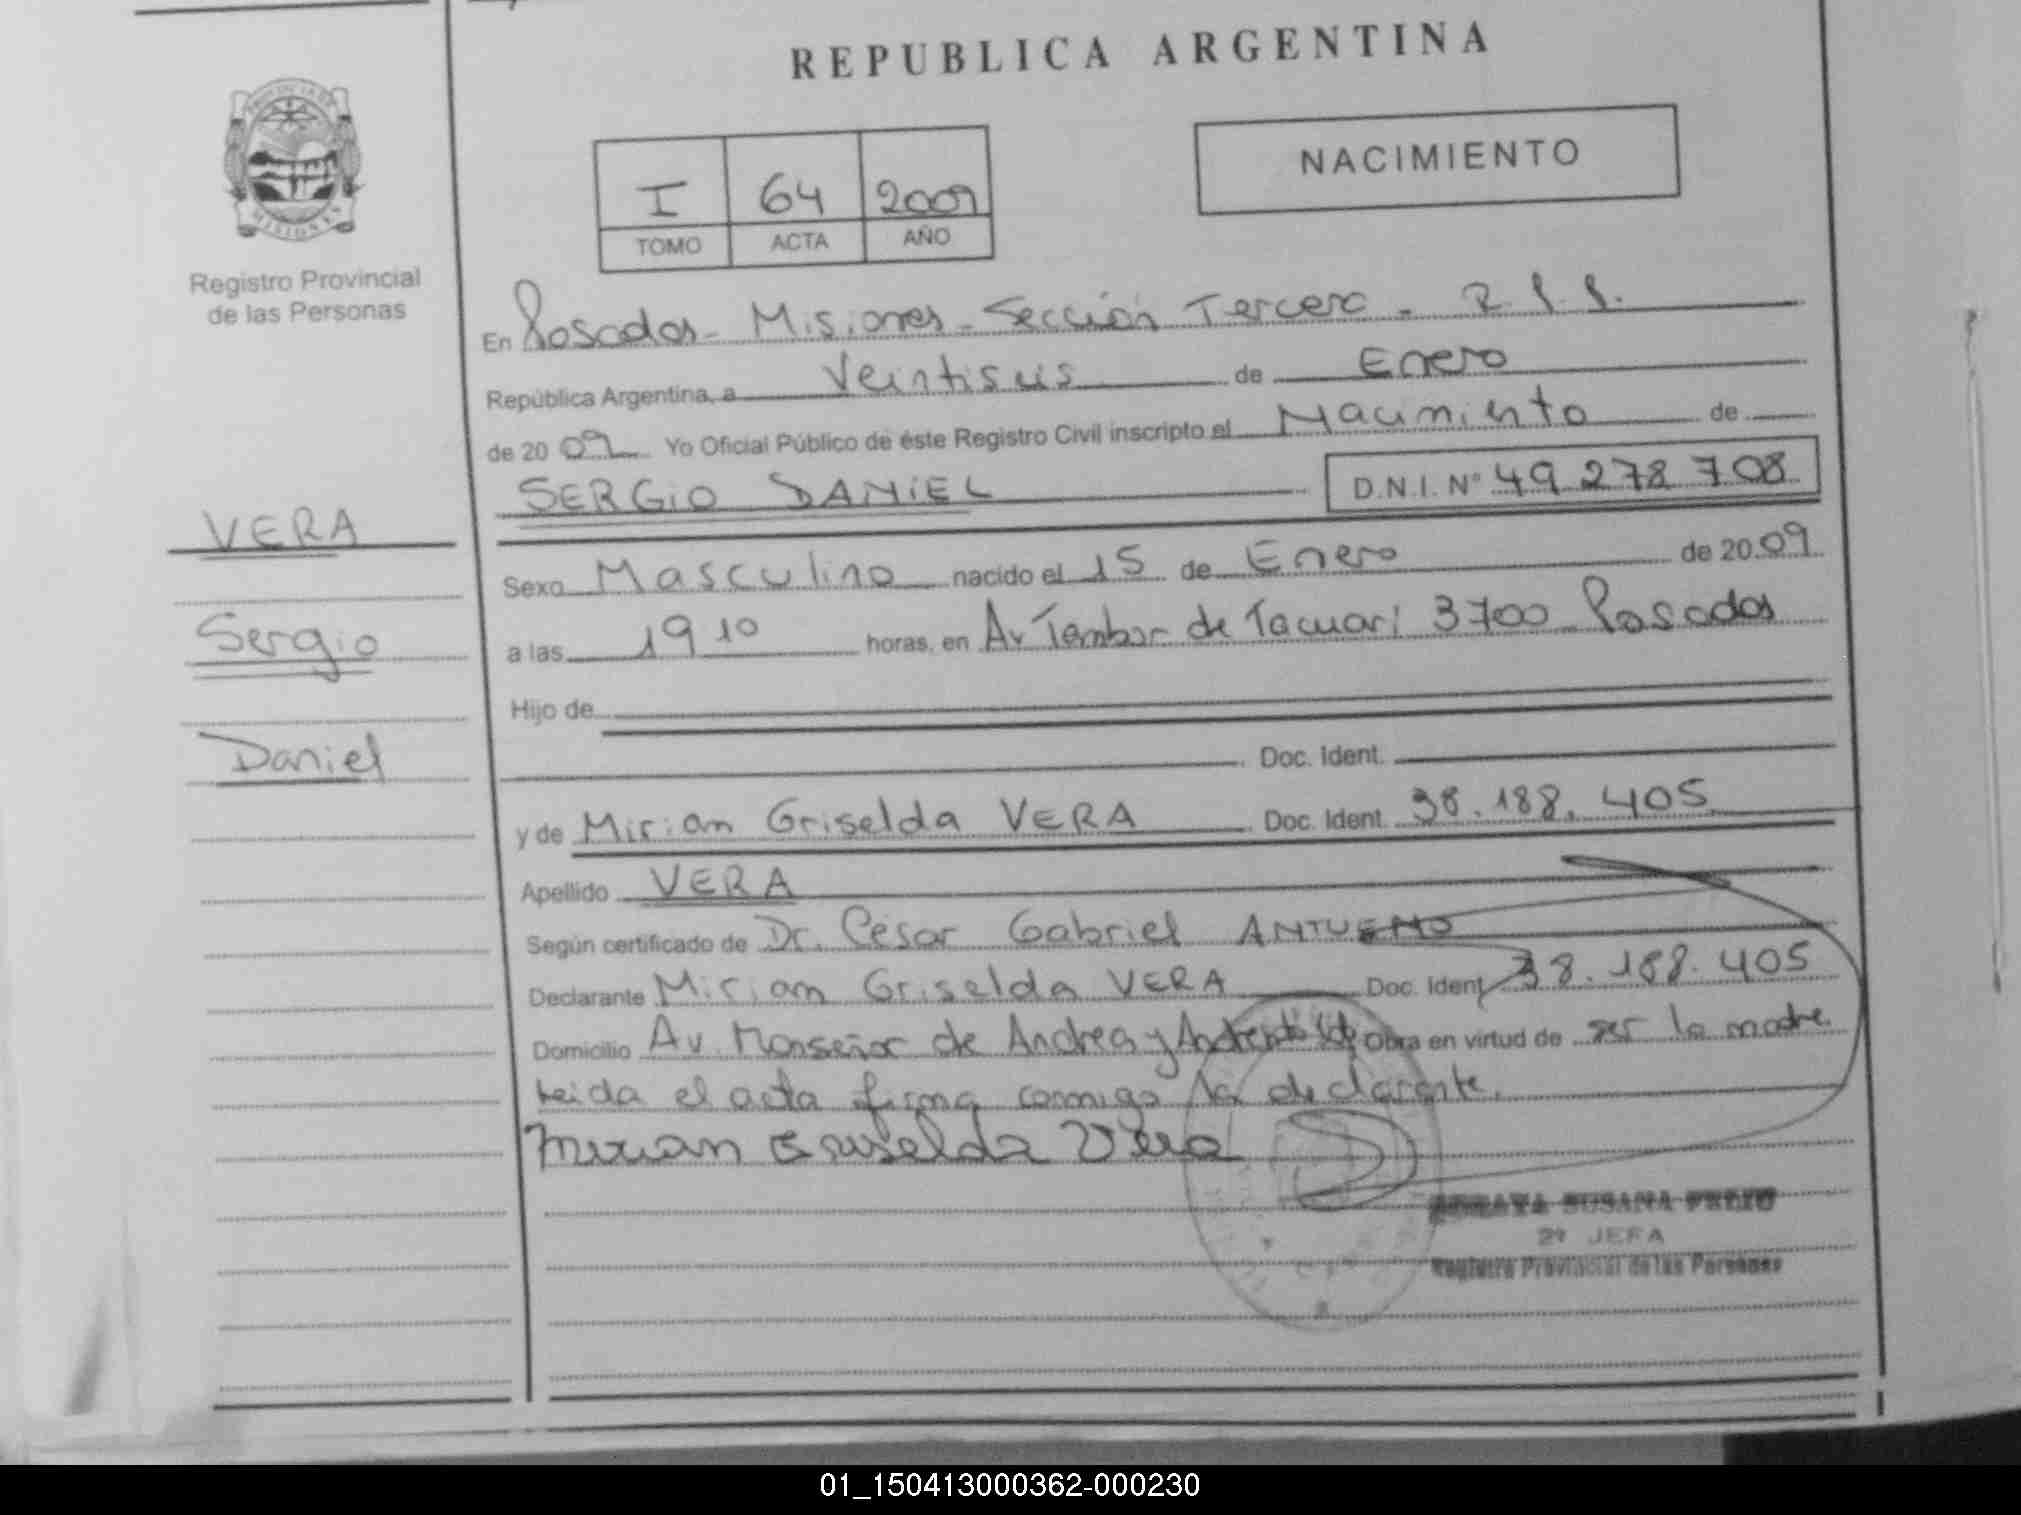 REPUBLICA ARGENTINA
PROVINCIA DE
MISIONES
Registro Provincial
de las Personas
I 64 2009
TOMO ACTA AÑO
NACIMIENTO
En Posadas - Misiones - Sección Tercera - R.P.P.
República Argentina, a Veintiseis de Enero
de 2009 Yo Oficial Público de éste Registro Civil inscripto el Nacimiento de
SERGIO DANIEL D.N.I. Nº 49 278 708
VERA
Sergio
Daniel
Sexo Masculino nacido el 15 de Enero de 2009
a las 19 10 horas, en Av Tambor de Tacuari 3700 Posadas
Hijo de
Doc. Ident.
y de Mirian Griselda VERA Doc. Ident. 38.188.405
Apellido VERA
Según certificado de Dr. César Gabriel
Declarante Mirian Griselda VERA Doc. Ident 38.188.405
Domicilio Av. Monseñor de Andrea y Obra en virtud de ser la madre
Leida el acta firma conmigo la declarante.
Mirian Griselda Vera
SUSANA
2º JEFA
Registro Provincial de las Personas
01_150413000362-000230